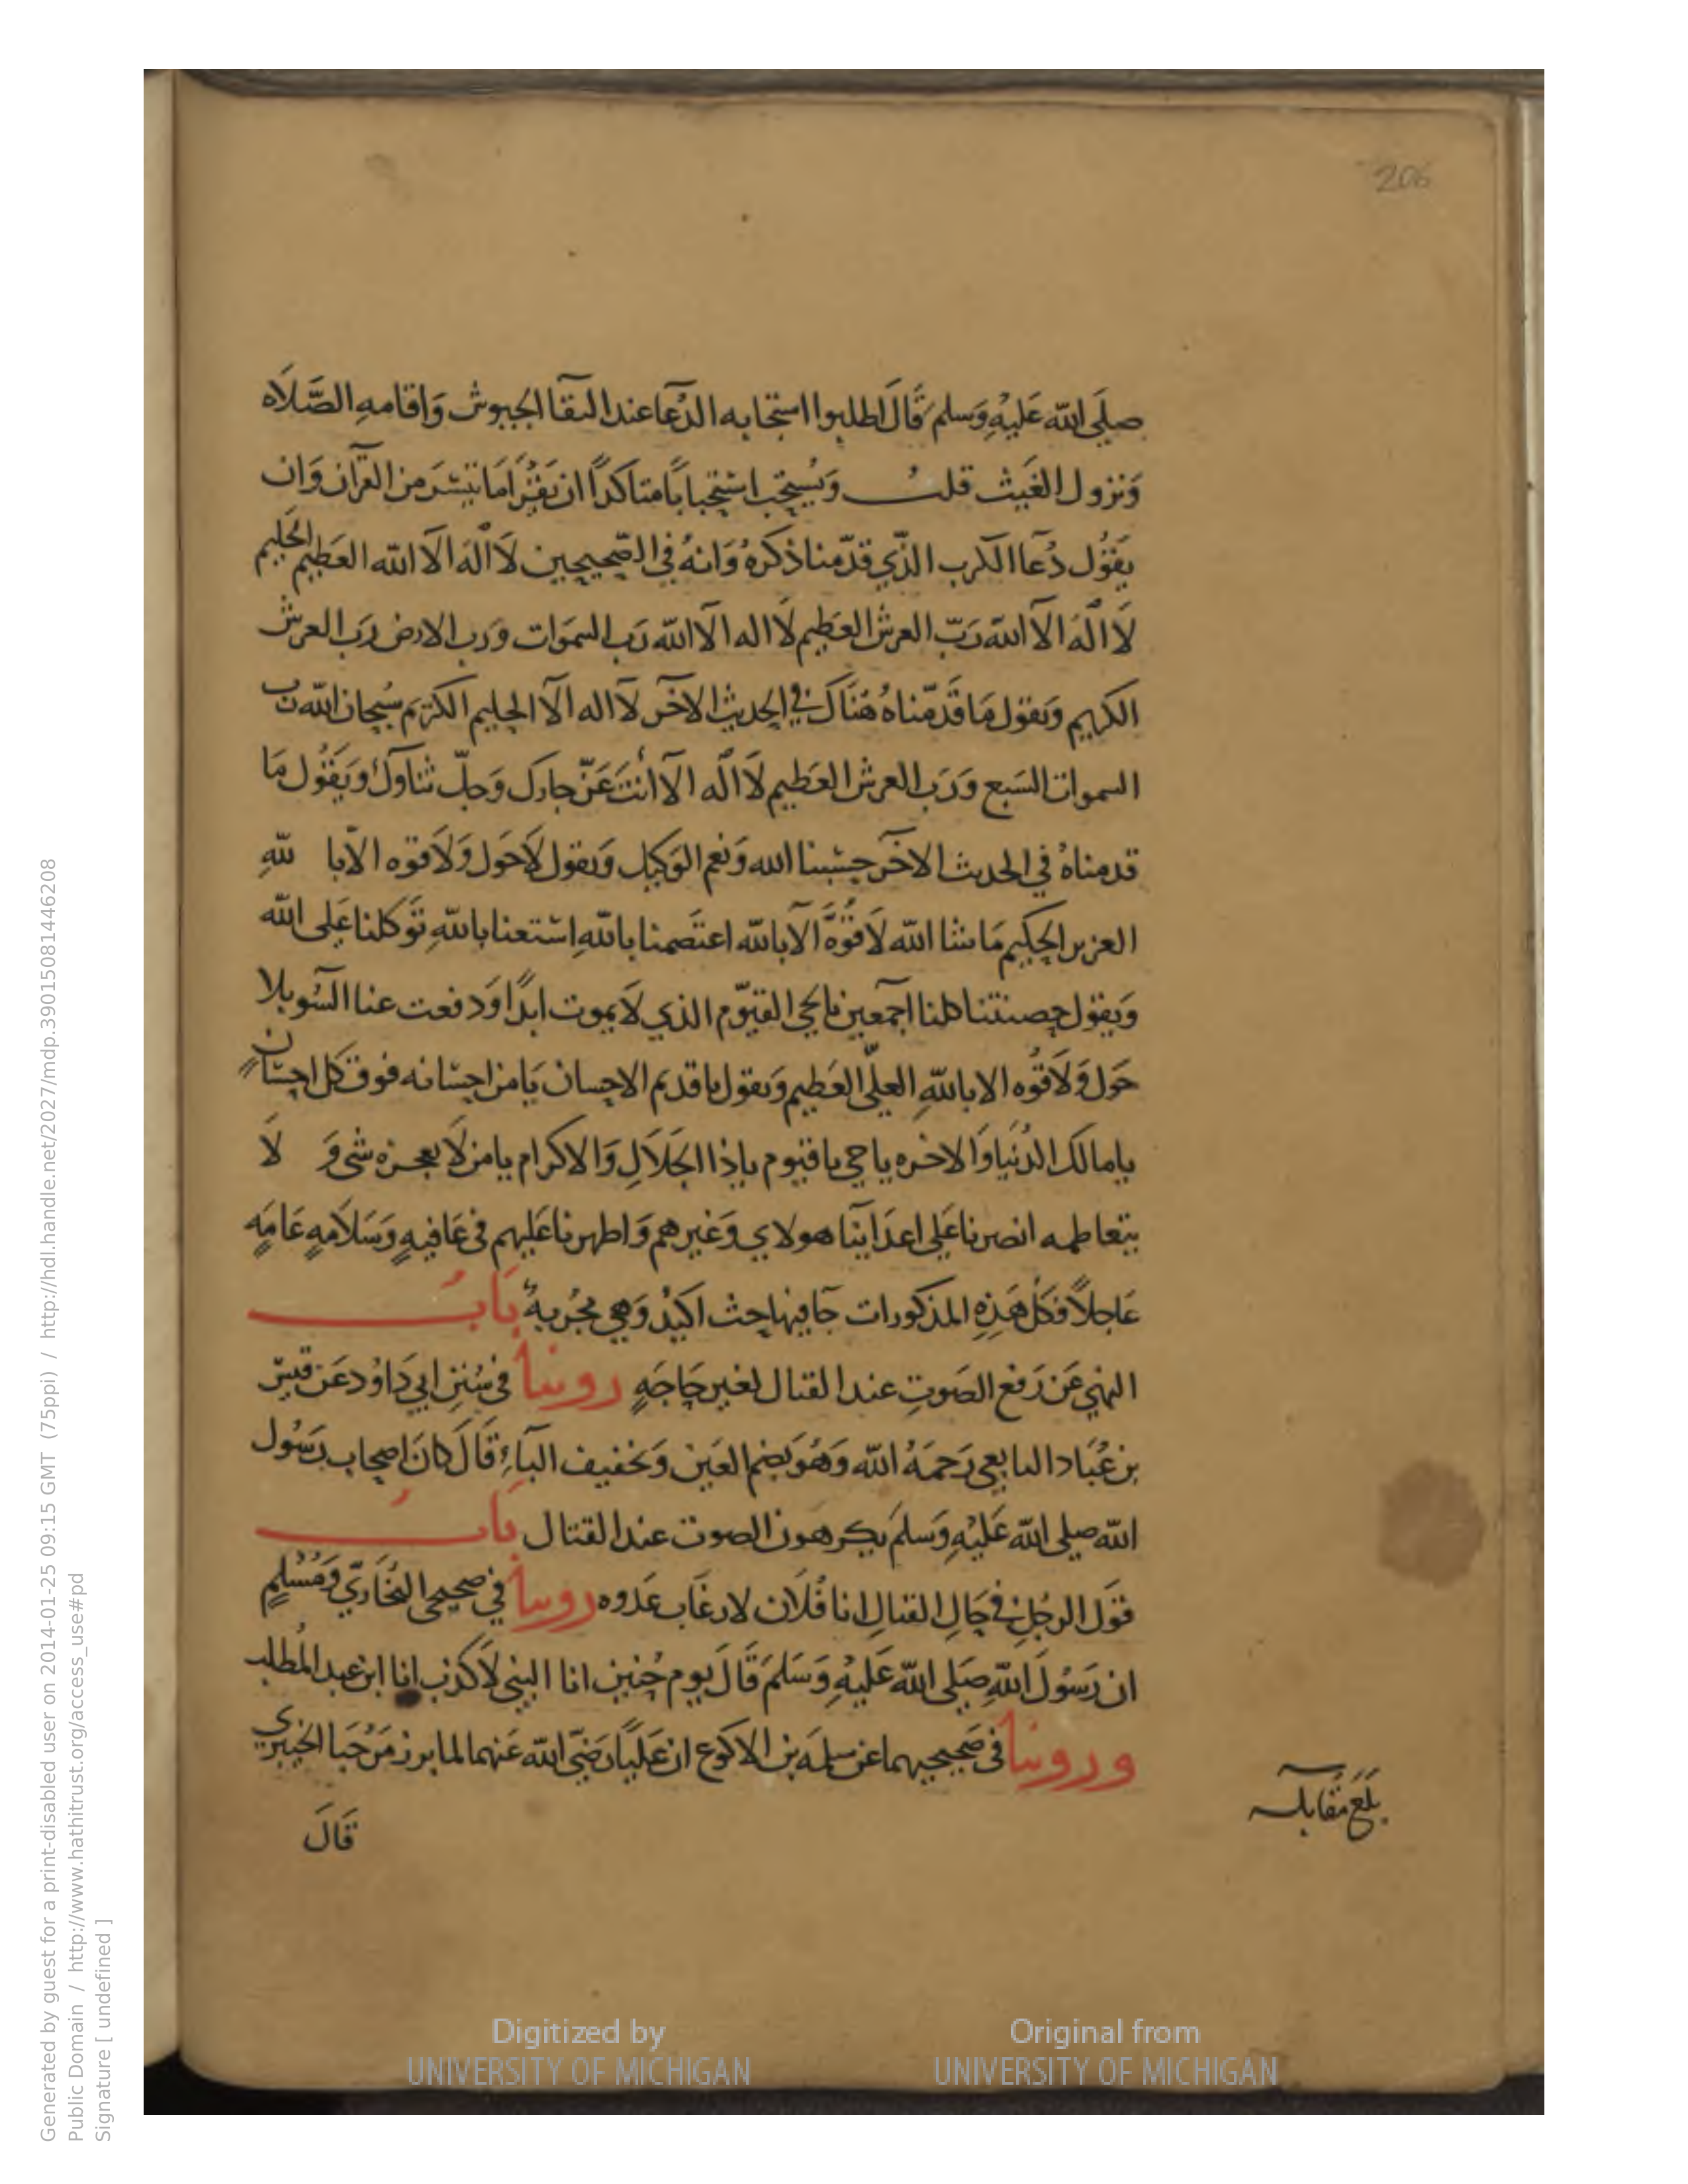 206
صلَى الله عَليْهِ وَسلم قَالَ اطلبوا استجابه الدُعا عند التقا الجيوش وَاقامهِ الصَّلاَه
وَنزول الغَيث قلتُ وَيُستحَب استِحبابًا متاكدًا ان يَقرَا مَا تيسَّر من القرآن وَان
يَقوُل دُعَا الكرب الذّي قدّمنا ذكرهُ وَانهُ في الصّحيحين لاَ الٓهَ الاّ الله العَظيم الحَليم
لاَ الٓهَ الاّ الله رَبّ العرش العَظيم لاَ اله الاّ الله رَب السموَات وَرب الارض رَب العرش
الكريم وَيقول مَا قَدّمناهُ هُنَاكَ في الحديث الاخَر لاَ اله الاّ الحليم الكريم سُبحان الله رَب
السموات السَبع وَرَب العرش العَظيم لاَ الٓه الاّ انْتَ عَزّ جارك وَجلّ ثناوكَ وَيَقوُل مَا
قدمناهُ في الحديث الاخَر حسْبنا الله وَنعم الوَكيل وَيقول لاَ حَول وَلاَ قوه الاّ با للهِ
العزيز الحكيم مَا شا الله لاَ قُوَّهَ الاّ بالله اعتَصمنا باللهِ استعنا باللهِ تَوكلنا عَلى الله
وَيقول حصنتنا كلنا اجمعين بالحي القيّوم الذي لاَ يموت ابدًا وَدفعت عنا السُّو بلا
حَول وَلاَ قُوه الا باللهِ العليّ العَظيم وَيقول يا قديم الاحسان يَا من احسانه فوق كل احسَان
يا مالك الدُنيا وَالاخره يا حي يا قيوم يا ذا الجَلاَلِ وَالاكرام يا من لاَ يعجزه شي وَ لاَ
يتعاظمه انصرنا عَلى اعدَاينا هولاي وَغيرهم وَاظهرنا عَليهم في عَافيهٍ وَسَلاَمهٍ عَامَهٍ
عَاجلاً فكل هَذِهِ المذكورات جَا فيها حث اكيدُ وَهي مجُربهٌ بَابُ
النهي عَن رَفع الصَوتِ عند القتال لغير حَاجَهٍ روينا في سُنن ابي دَاوُد عَن قيس
بن عُبَاد التابعي رَحمَهُ الله وَهُوَ بضم العَين وَتخفيف البَاءِ قَالَ كانَ اصحاب رَسُول
الله صلى الله عَليْهِ وَسلمَ يكرهون الصوت عند القتال بَابُ
قوَل الرجُلِ في حَالِ القتالِ انا فُلاَن لارعَاب عَدوه روينا في صحيحي البُخَارِيّ وَمُسْلِمٍ
ان رَسُولَ اللهِ صَلى الله عَليْهِ وَسَلمَ قَالَ يوم حُنين انا النبي لاَ كذب انا ابن عبد المُطلب
وروينا في صَحيحيهما عن سلمَه بن الاكوع ان عَليًا رَضيَ الله عَنهما لما برز مَرْحَبا الخيبري
قَالَ
بَلَغ مُقابلة
Digitized by UNIVERSITY OF MICHIGAN
Original from UNIVERSITY OF MICHIGAN
Generated by guest for a print-disabled user on 2014-01-25 09:15 GMT (75ppi) / http://hdl.handle.net/2027/mdp.39015081446208
Public Domain / http://www.hathitrust.org/access_use#pd
Signature [ undefined ]